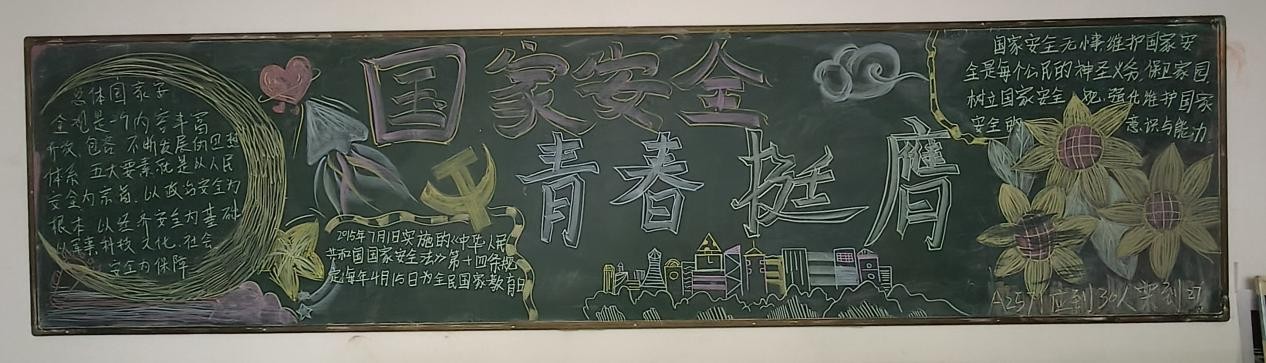 国家安全
青春挺膺
总体国家安
全观是个内容丰富
开放包容 不断发展的思想
体系 五大要素就是以人民
安全为宗旨，以政治安全为
根本 以经济安全为基础
以军事科技 文化 社会
安全为保障
2015年7月1日实施的《中华人民
共和国国家安全法》第十四条规
定每年4月15日为全民国家教育日
国家安全无小事维护国家安
全是每个公民的神圣义务，保卫家园，
树立国家安全 观，强化维护国家
安全的 意识与能力
应到30人 实到27